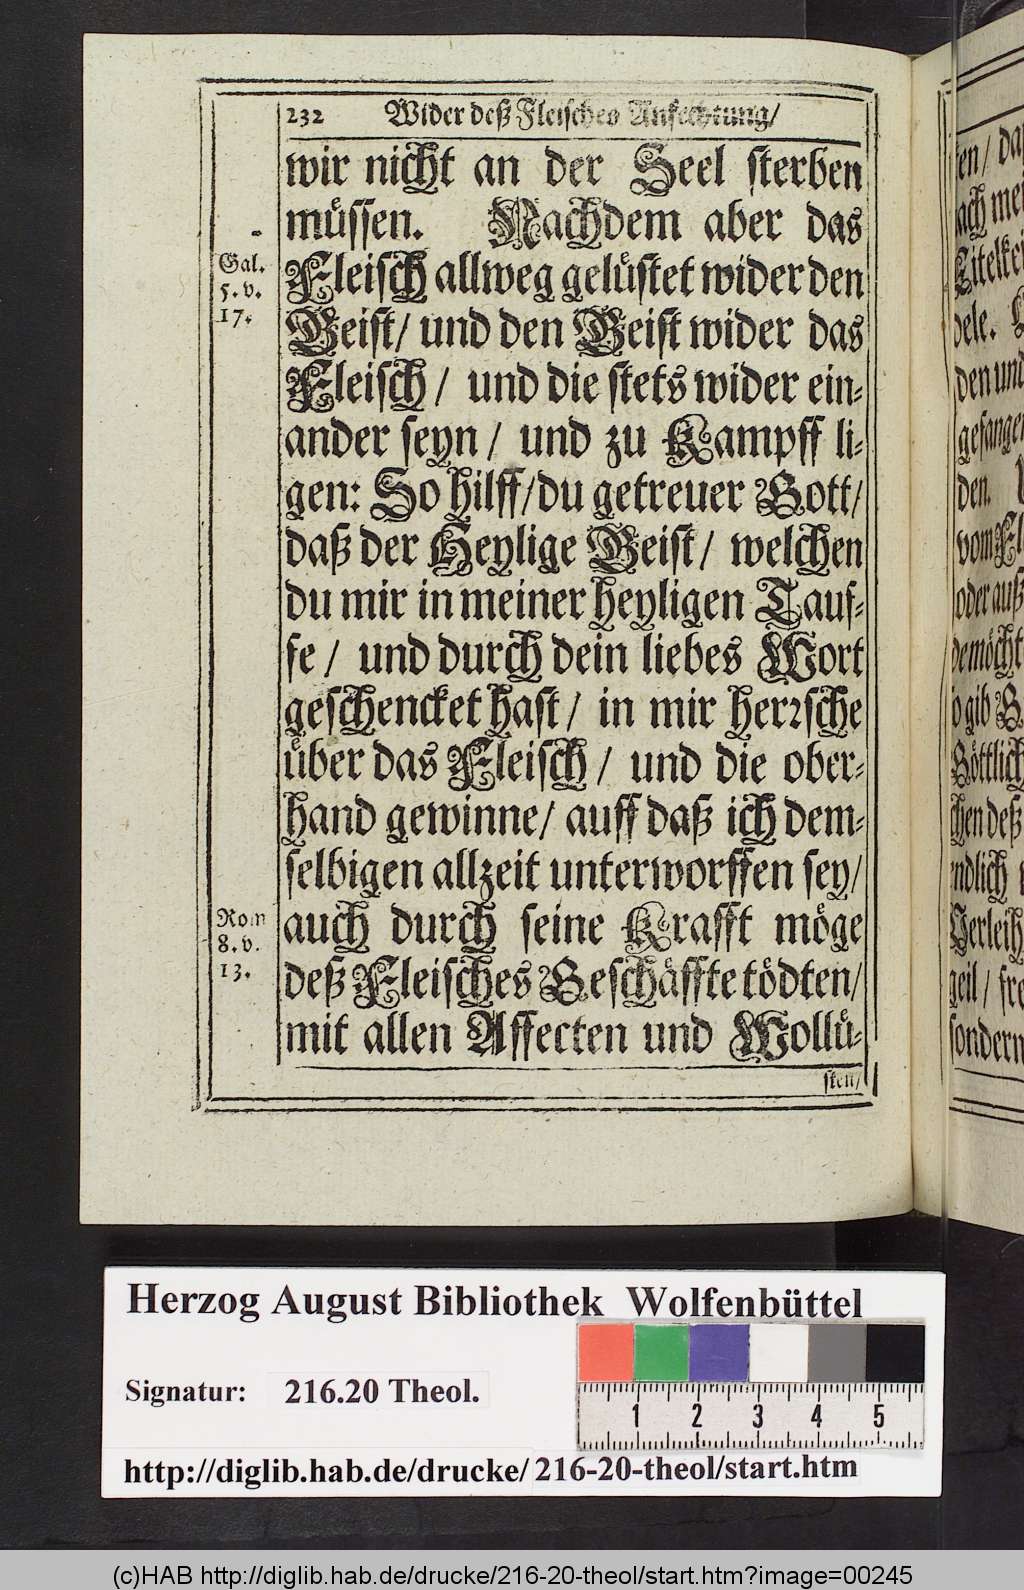 232 Wider deß Fleisches Anfechtung/
wir nicht an der Seel sterben
müssen. Nachdem aber das
Fleisch allweg gelüstet wider den
Geist/ und den Geist wider das
Fleisch/ und die stets wider ein-
ander seyn/ und zu Kampff li-
gen: So hilff/ du getreuer Gott/
daß der Heylige Geist/ welchen
du mir in meiner heyligen Tauf-
fe/ und durch dein liebes Wort
geschencket hast/ in mir herꝛsche
über das Fleisch/ und die ober-
hand gewinne/ auff daß ich dem-
selbigen allzeit unterworffen sey/
auch durch seine Krafft möge
deß Fleisches Geschäffte tödten/
mit allen Affecten und Wollü-
sten/
Gal.
5. v.
17.
Rom
8. v.
13.
ten/
ach
Eitelkei
dele.
den und
gefangen
den.
vom
oder auß
demöcht
so gib
Göttlich
chen deß
endlich
Verleih
geil/
sondern
Herzog August Bibliothek Wolfenbüttel
Signatur: 216.20 Theol.
1 2 3 4 5
http://diglib.hab.de/drucke/216-20-theol/start.htm
(c)HAB http://diglib.hab.de/drucke/216-20-theol/start.htm?image=00245